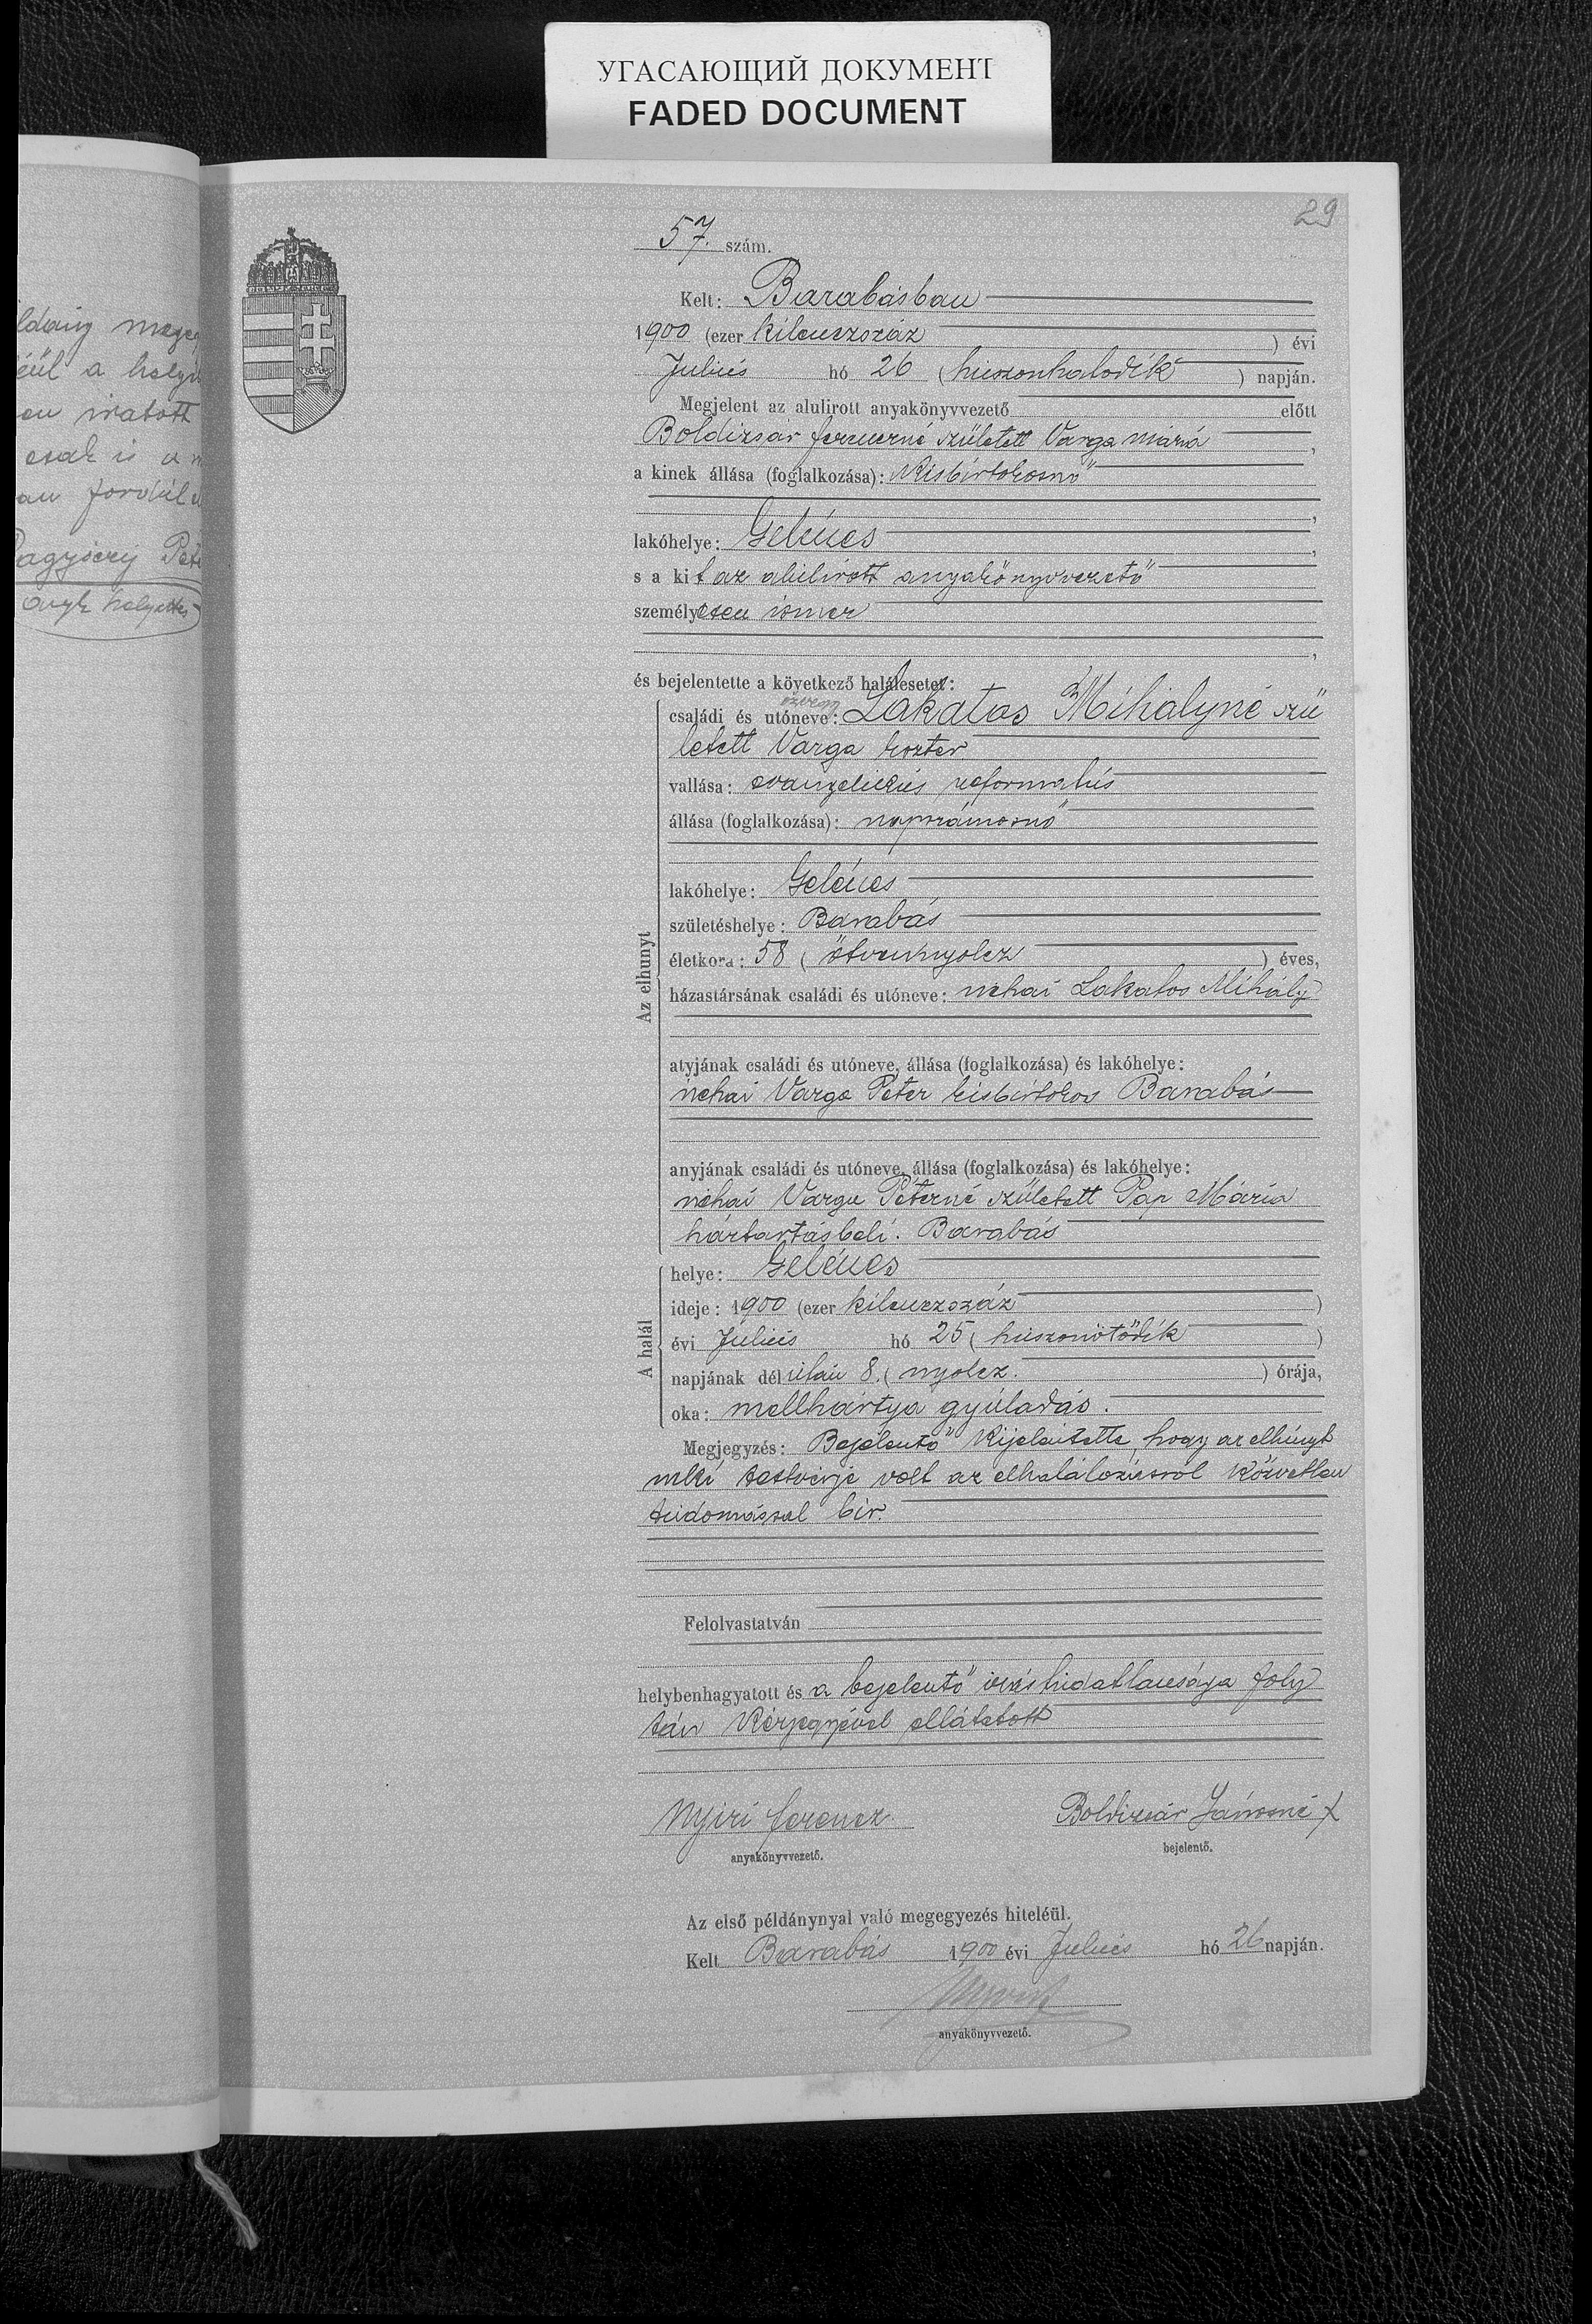 УГАСАЮЩИЙ ДОКУМЕНТ
FADED DOCUMENT
29
57. szám.
Kelt: Barabásban
1900 (ezer kilenczszáz ) évi
Julius hó 26 (huszonhatodik ) napján.
Megjelent az alulirott anyakönyvvezető előtt
Boldizsár Ferenczné született Varga mária ,
a kinek állása (foglalkozása): kisbirtokosnő
,
lakóhelye: Gelénes ,
s a kit az alulirott anyakönyvvezető
személyesen ismer
,
és bejelentette a következő halálesetet:
özvegy
családi és utóneve: Lakatos Mihályné szü
letett Varga Eszter
vallása: evangelikus reformatus
állása (foglalkozása): napszámosnő
lakóhelye: Gelénes
születéshelye: Barabás
életkora: 58 ( ötvennyolcz ) éves,
Az elhunyt
házastársának családi és utóneve: néhai Lakatos Mihály
atyjának családi és utóneve, állása (foglalkozása) és lakóhelye:
néhai Varga Péter kisbirtokos Barabás
anyjának családi és utóneve, állása (foglalkozása) és lakóhelye:
néhai Varga Péterné született Pap Mária
háztartásbeli. Barabás
helye: Gelénes
ideje: 1900 (ezer kilenczszáz )
évi Julius hó 25 ( huszonötödik )
A halál
napjának dél után 8. ( nyolcz. ) órája,
oka: mellhártya gyúladás.
Megjegyzés: Bejelentő kijelentette, hogy az elhúnyt
neki testvérje volt az elhalálozásról közvetlen
tudomással bir.
Felolvastatván
helybenhagyatott és a bejelentő irástudatlansága foly
tán kézjegyével ellátatott
Nyiri Ferencz
Boldizsár Jánosné x
anyakönyvvezető.
bejelentő.
Az első példánynyal való megegyezés hiteléül.
Kelt Barabás 1900 évi Julius hó 26 napján.
anyakönyvvezető.
ldány mege
éül a helyt
en iratott
csak is a
an fordul
Pet
anyk helyettes